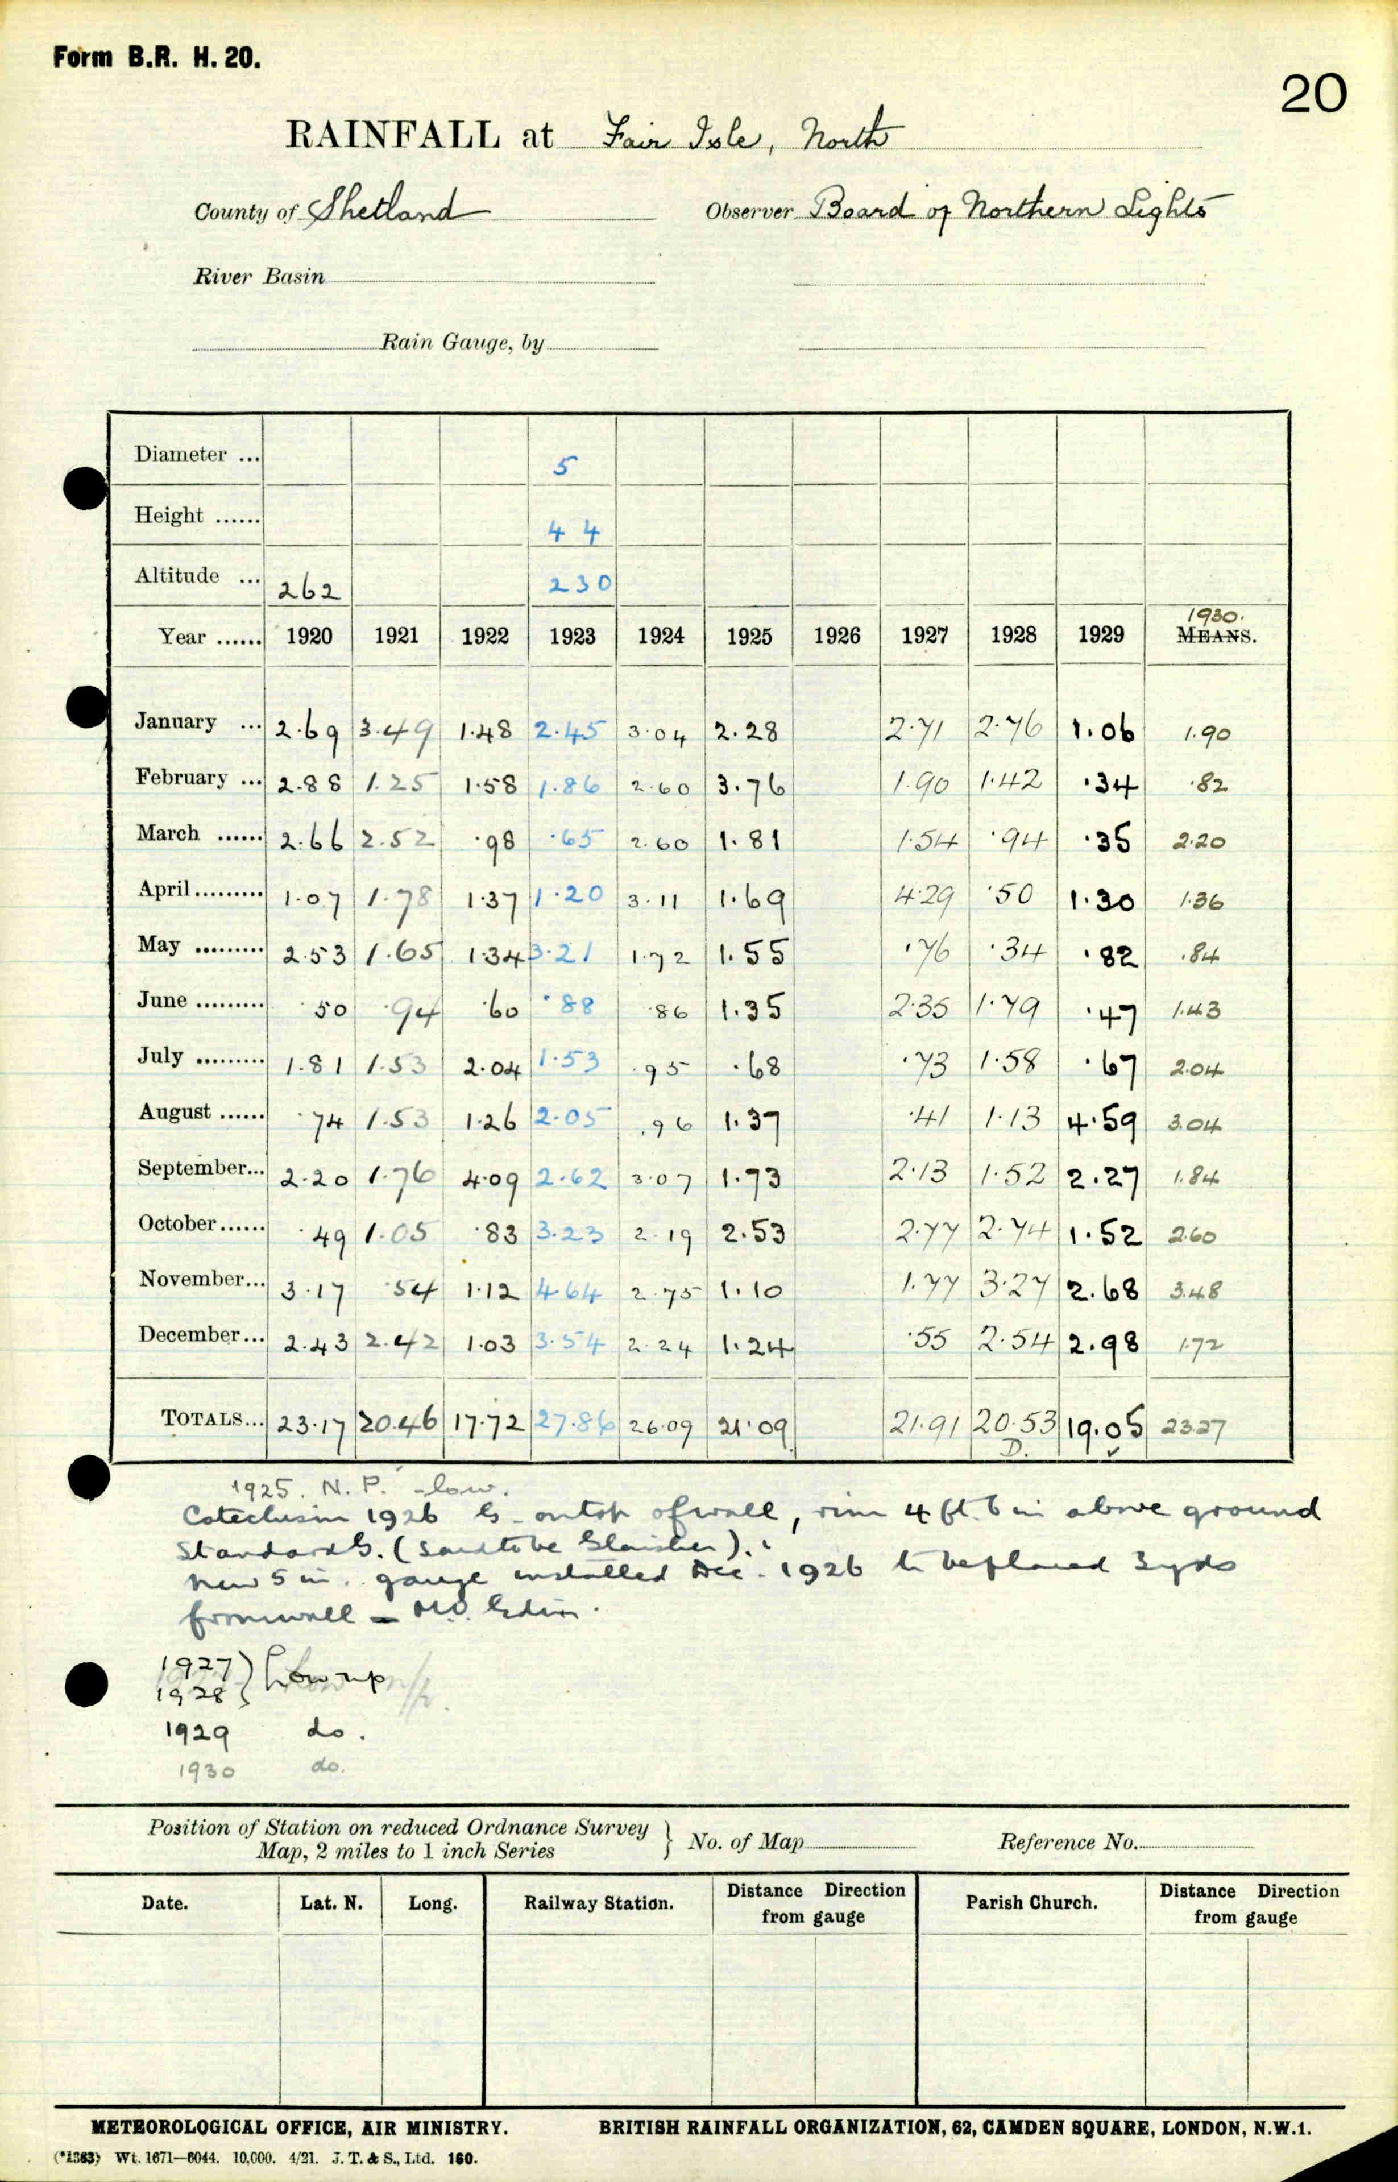 Form B.R. H. 20.
20
RAINFALL at Fair Isle, North
County of Shetland Observer Board of Northern Lights
River Basin
Rain Gauge, by
Diameter ... 5
Height ...... 4 4
Altitude ... 262 230
1930.
Year ...... 1920 1921 1922 1923 1924 1925 1926 1927 1928 1929 MEANS.
January ... 2.69 3.49 1.48 2.45 3.04 2.28 2.71 2.76 1.06 1.90
February ... 2.88 1.25 1.58 1.86 2.60 3.76 1.90 1.42 .34 .82
March ...... 2.66 2.52 .98 .65 2.60 1.81 1.54 .94 .35 2.20
April ......... 1.07 1.78 1.37 1.20 3.11 1.69 4.29 .50 1.30 1.36
May ......... 2.53 1.65 1.34 3.21 1.72 1.55 .76 .34 .82 .84
June ......... .50 .94 .60 .88 .86 1.35 2.35 1.79 .47 1.43
July ......... 1.81 1.53 2.04 1.53 .95 .68 .73 1.58 .67 2.04
August ...... .74 1.53 1.26 2.05 .96 1.37 .41 1.13 4.59 3.04
September... 2.20 1.76 4.09 2.62 3.07 1.73 2.13 1.52 2.27 1.84
October ...... .49 1.05 .83 3.23 2.19 2.53 2.77 2.74 1.52 2.60
November... 3.17 .54 1.12 4.64 2.75 1.10 1.77 3.27 2.68 3.48
December... 2.43 2.42 1.03 3.54 2.24 1.24 .55 2.54 2.98 1.72
TOTALS... 23.17 20.46 17.72 27.86 26.09 21.09 21.91 20.53 19.05 23.27
D.
1925. N.P. - low.
1926 G. on top of wall, rim 4 ft. 6 in above ground
Standard G. (said to be Glaisher).
New 5 in. gauge installed Dec. 1926 to be placed 3 yds
from wall - M.O. Edin.
1927 }
1928 } Low up
1929 do.
1930 do.
Position of Station on reduced Ordnance Survey
Map, 2 miles to 1 inch Series } No. of Map Reference No.
Date. Lat. N. Long. Railway Station. Distance Direction from gauge Parish Church. Distance Direction from gauge
METEOROLOGICAL OFFICE, AIR MINISTRY. BRITISH RAINFALL ORGANIZATION, 62, CAMDEN SQUARE, LONDON, N.W.1.
(*1383) Wt. 1671—6044. 10,000. 4/21. J. T. & S., Ltd. 160.